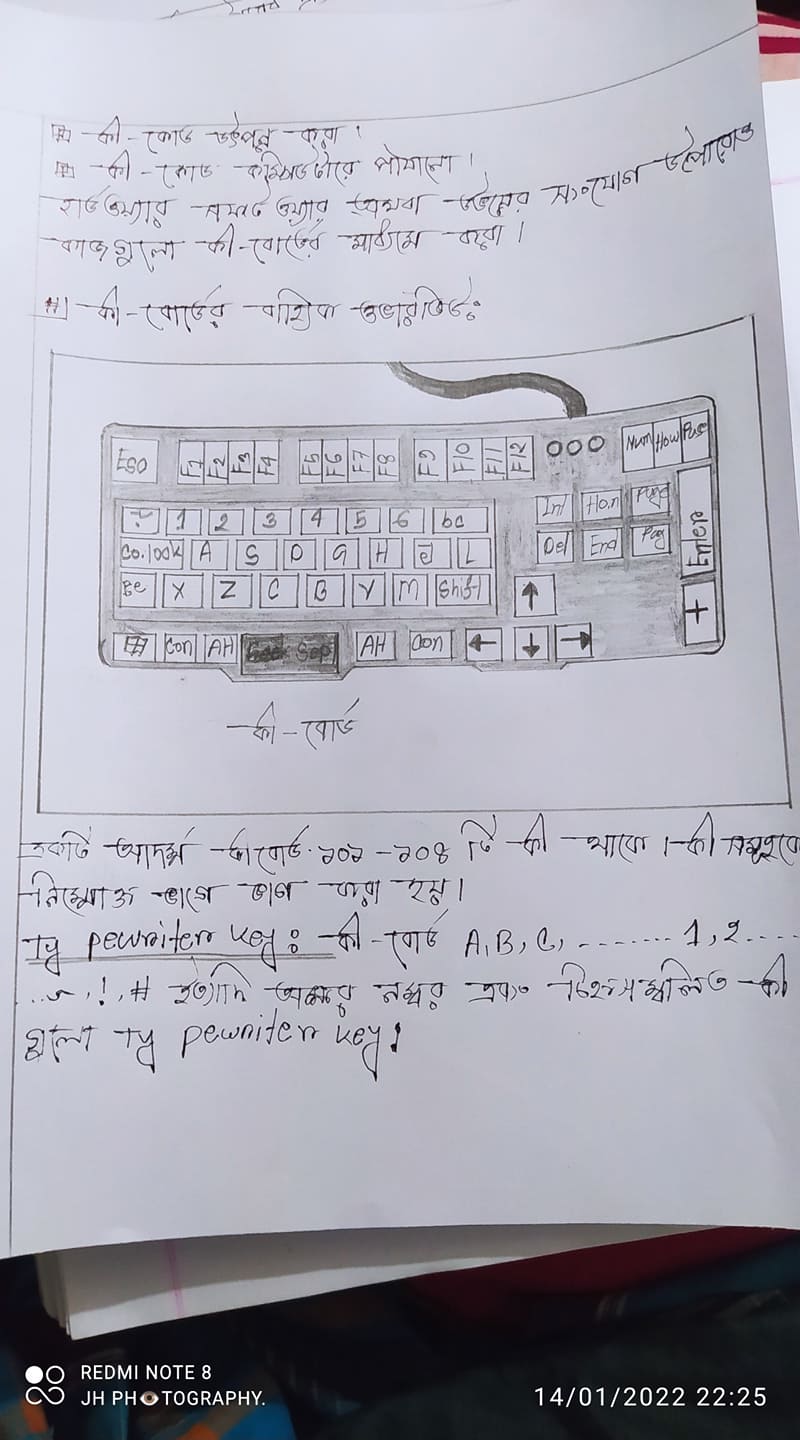 কী-কোড উৎপন্ন করা।
কী-কোড কম্পিউটারে পাঠানো।
হার্ডওয়্যার সফটওয়্যার অথবা উভয়ের সংযোগ উপরোক্ত
কাজগুলো কী-বোর্ডের মাধ্যমে করা।
# কী-বোর্ডের বাহ্যিক ওভারভিউঃ
Eso F1 F2 F3 F4 F5 F6 F7 F8 F9 F10 F11 F12 Num How Puse
1 2 3 4 5 6 bc Inl Hom Page
Co.look A S D G H L Del End Pag Enter
Be X Z C B Y M Shift +
Con AH Sep AH Con
কী-বোর্ড
একটি আদর্শ কীবোর্ড ১০১-১০৪ টি কী থাকে। কী সমূহকে
নিম্মোক্ত ভাগে ভাগ করা হয়।
Ty pewriter key: কী-বোর্ড A, B, C, ........ 1, 2....
!, # ইত্যাদি অক্ষর নম্বর এবং চিহ্নসম্বলিত কী
গুলো Ty pewriter key।
REDMI NOTE 8
JH PHOTOGRAPHY.
14/01/2022 22:25